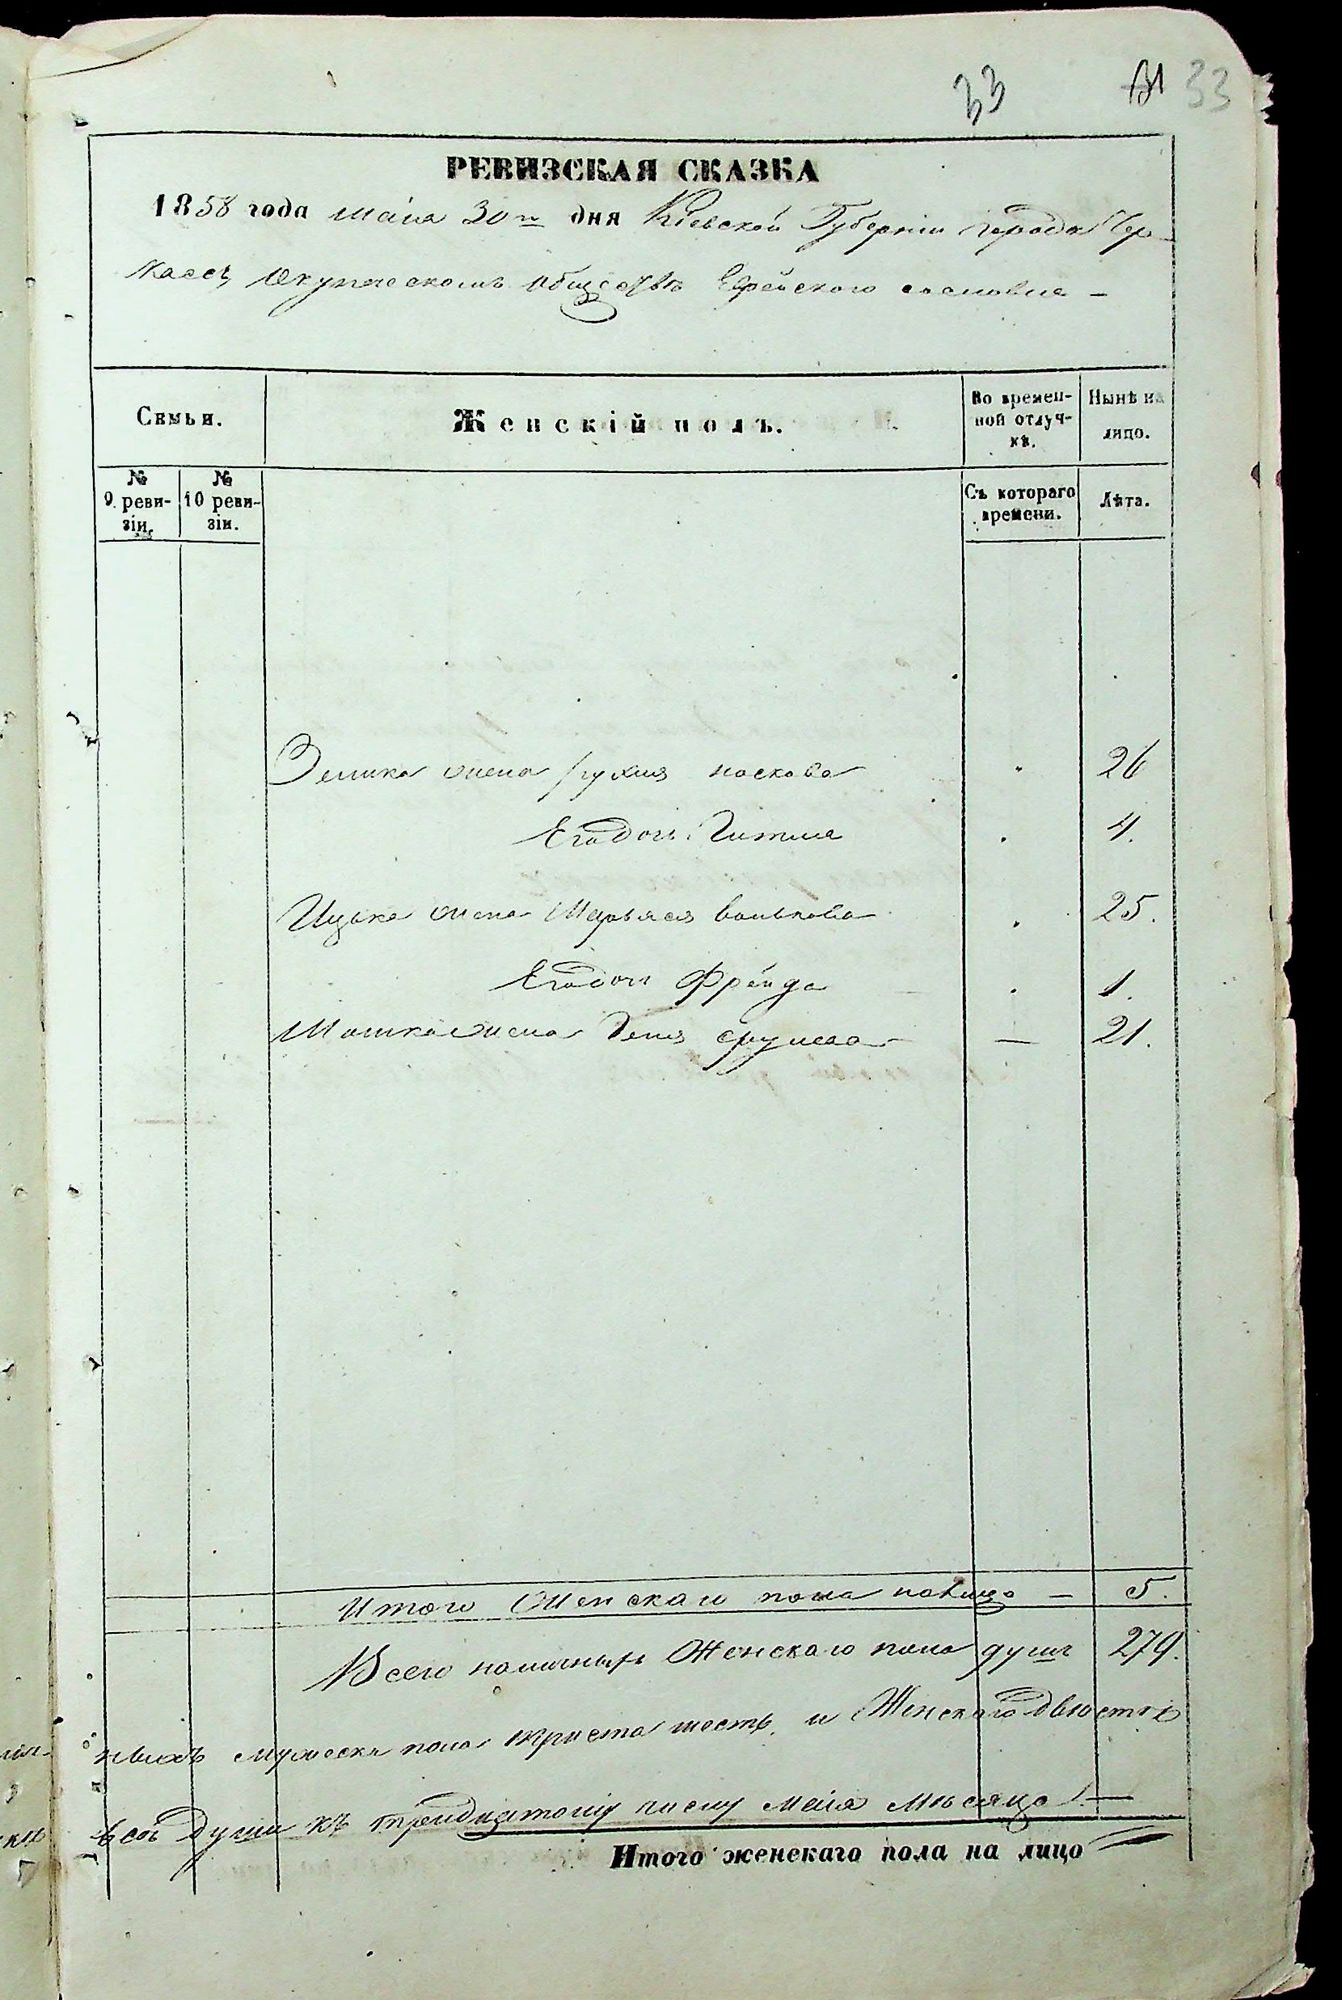 33 31 33
РЕВИЗСКАЯ СКАЗКА
1858 года маiя 30го дня Кiевской Губернiи города Чер-
касъ Окупеческомъ обществѣ Еврейского сословия –
Семьи. Женскiй полъ. Во времен-ной отлуч-кѣ. Нынѣ на лицо.
№ 9. реви-зiи. № 10 реви-зiи. Съ котораго времени. Лѣта.
Зелика жена Рухля носкова 26
Егодочь Гитля 4.
Ицька жена Марьяся волькова 25.
Егодочь Фрейда 1.
Мошка жена срулева — 21.
Итого Женскаго пола налицо — 5.
Всего наличныхъ Женскаго пола душъ 279.
ныхъ мужеска пола триста шесть и Женскаго двѣсти
душа къ тридцатому числу маiя мѣсяца —
Итого женскаго пола на лицо